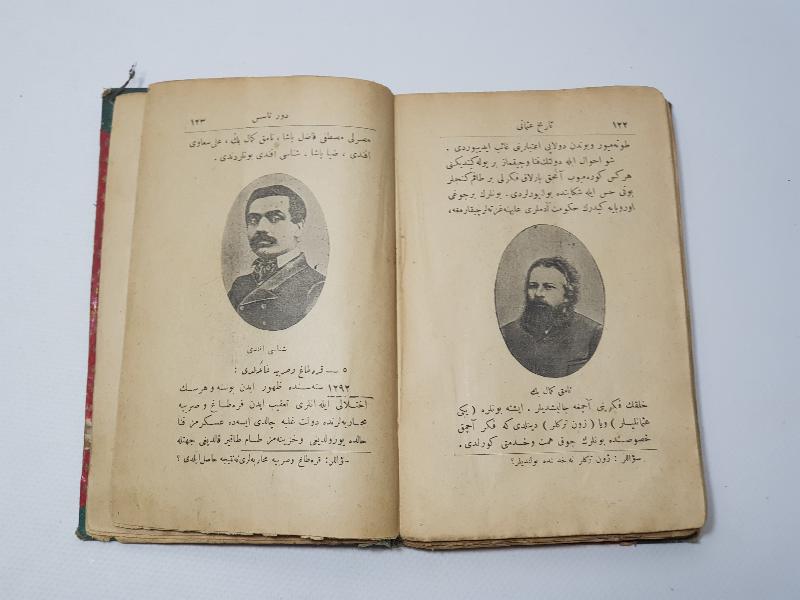 ١٢٢
تاريخ عثمانى
طوته‌ميور وبوندن دولايى اعتبارينى غائب ايدييوردى .
شو احوال ايله دولتك فنا وچيقماز بر يوله كيتديكنى
هركس كوره‌ميوب آنجق پارلاق فكرلى بر طاقم كنجلر
بونى حس ايله شكايتده بولنيورلردى . بونلرك برچوغى
اوروپايه كيدرك حكومت آدملرى عليهنه غزته‌لر چيقارمغه ،
نامق كمال بك
خلقك فكرينى آچمغه چاليشديلر . ايشته بونلره ( يكى
عثمانليلر ) ويا ( ژون تركلر ) دينلدى كه فكر آچمق
خصوصنده بونلرك چوق همت وخدمتى كورلدى .
سؤاللر : ژون تركلر نه خدمتده بولنديلر ؟
دور تاسس
١٢٣
مصرلى مصطفى فاضل پاشا ، نامق كمال بك ، على سعاوى
افندى ، ضيا پاشا ، شناسى افندى بونلردندى .
شناسى افندى
٥ — قره‌طاغ وصربيه غائله‌لرى :
١٢٩٢ سنه‌سنده ظهور ايدن بوسنه وهرسك
اختلالى ايله انلرى تعقيب ايدن قره‌طاغ وصربيه
محاربه‌لرنده دولت غلبه چالدى ايسه‌ده عسكرمز فنا
حالده يورولديغى وخزينه‌مز طام طاقير قالديغى جهتله
سؤاللر : قره‌طاغ وصربيه محاربه‌لرى نه نتيجه حاصل ايلدى ؟